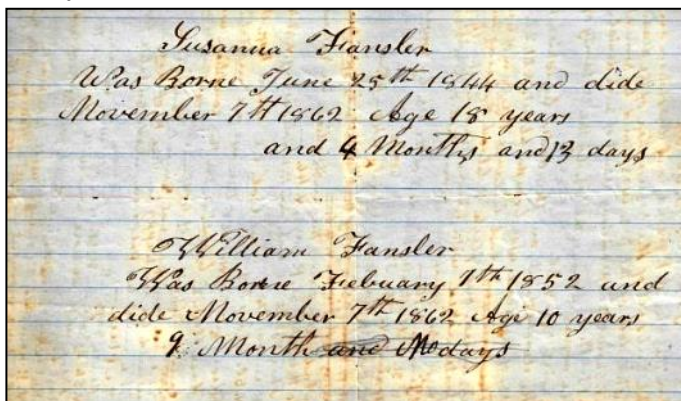 Susanna Fansler
Was Borne June 25th 1844 and dide
November 7th 1862 Age 18 years
and 4 Months and 13 days
William Fansler
Was Borne Febuary 7th 1852 and
dide November 7th 1862 Age 10 years
9 Month and No days